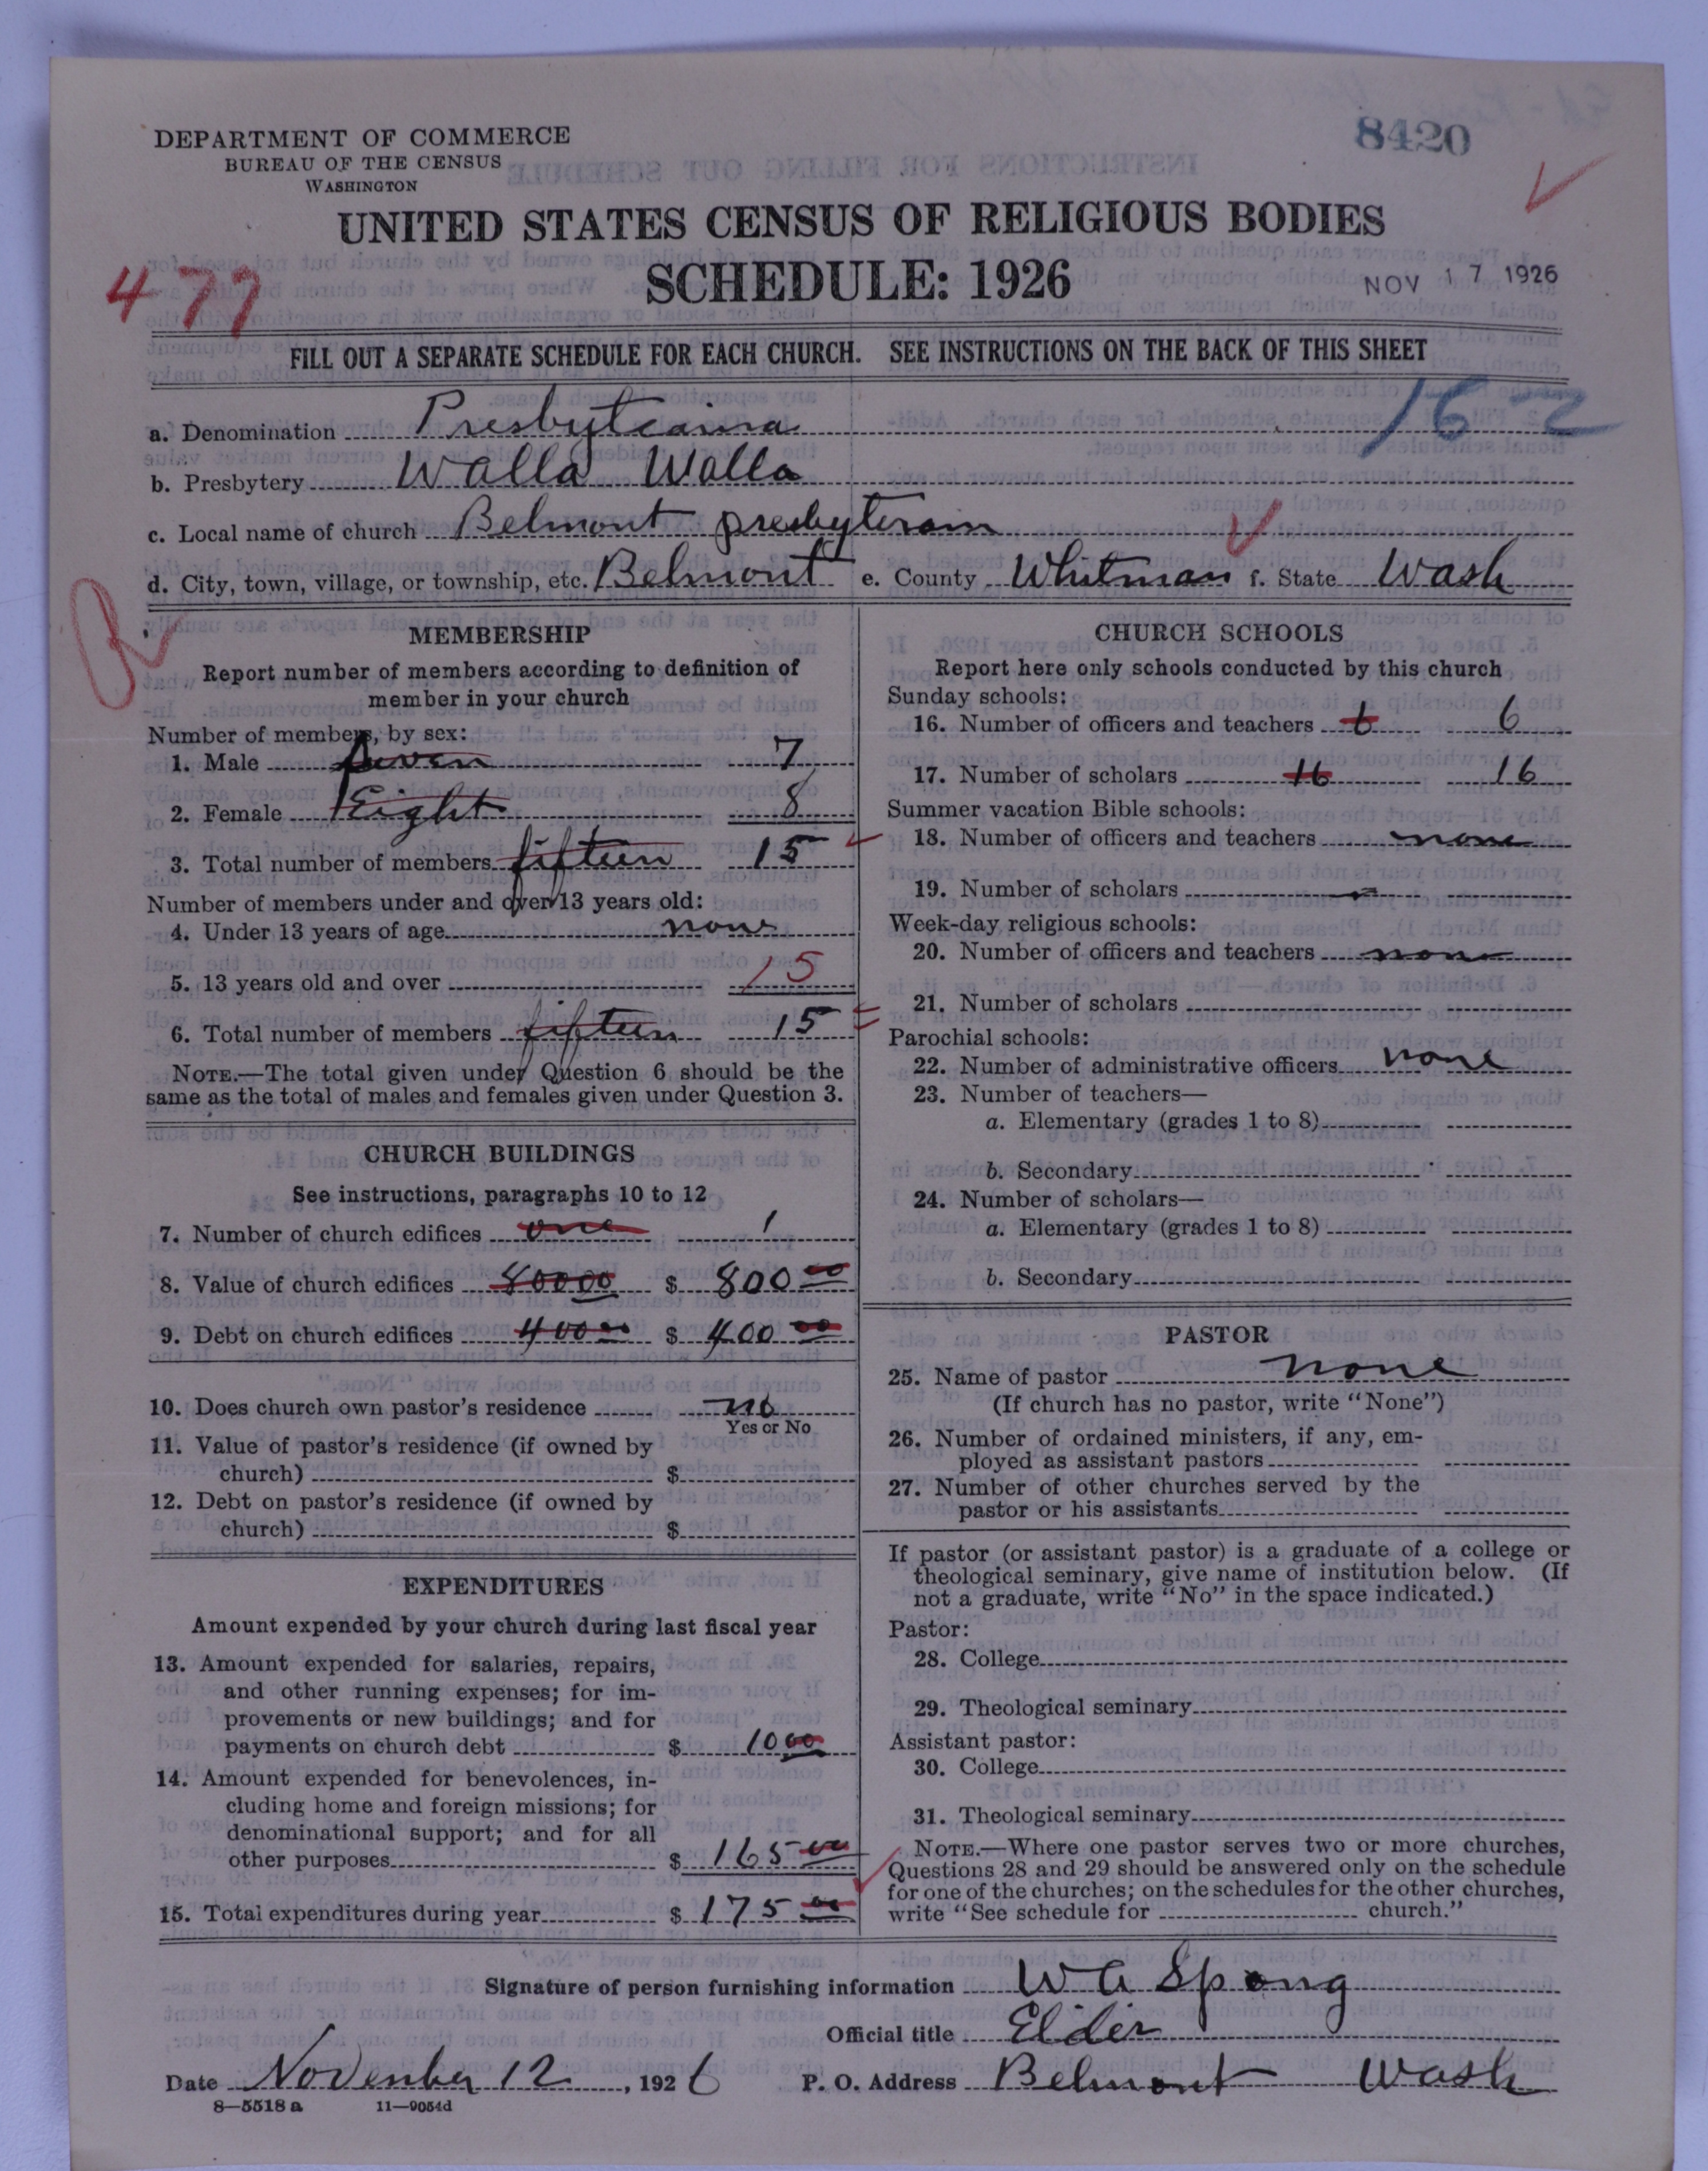 8420
DEPARTMENT OF COMMERCE
BUREAU OF THE CENSUS
WASHINGTON
UNITED STATES CENSUS OF RELIGIOUS BODIES
SCHEDULE: 1926
477
NOV 17 1926
FILL OUT A SEPARATE SCHEDULE FOR EACH CHURCH. SEE INSTRUCTIONS ON THE BACK OF THIS SHEET
16-2
a. Denomination Presbyteaina
b. Presbytery Walla Walla
c. Local name of church Belmont presbyteram
d. City, town, village, or township, etc. Belmont e. County Whitman f. State Wash
MEMBERSHIP
Report number of members according to definition of
member in your church
Number of members, by sex:
1. Male Seven 7
2. Female Eight 8
3. Total number of members fifteen 15
Number of members under and over 13 years old:
4. Under 13 years of age none
5. 13 years old and over 15
6. Total number of members fifteen 15
NOTE.—The total given under Question 6 should be the
same as the total of males and females given under Question 3.
CHURCH BUILDINGS
See instructions, paragraphs 10 to 12
7. Number of church edifices one 1
8. Value of church edifices 80000 $ 800 00
9. Debt on church edifices 400 00 $ 400 00
10. Does church own pastor's residence no
Yes or No
11. Value of pastor's residence (if owned by
church) $
12. Debt on pastor's residence (if owned by
church) $
EXPENDITURES
Amount expended by your church during last fiscal year
13. Amount expended for salaries, repairs,
and other running expenses; for im-
provements or new buildings; and for
payments on church debt $ 10 00
14. Amount expended for benevolences, in-
cluding home and foreign missions; for
denominational support; and for all
other purposes $ 165 00
15. Total expenditures during year $ 175 00
CHURCH SCHOOLS
Report here only schools conducted by this church
Sunday schools:
16. Number of officers and teachers 6 6
17. Number of scholars 16 16
Summer vacation Bible schools:
18. Number of officers and teachers none
19. Number of scholars
Week-day religious schools:
20. Number of officers and teachers none
21. Number of scholars
Parochial schools:
22. Number of administrative officers none
23. Number of teachers—
a. Elementary (grades 1 to 8)
b. Secondary
24. Number of scholars—
a. Elementary (grades 1 to 8)
b. Secondary
PASTOR
25. Name of pastor none
(If church has no pastor, write "None")
26. Number of ordained ministers, if any, em-
ployed as assistant pastors
27. Number of other churches served by the
pastor or his assistants
If pastor (or assistant pastor) is a graduate of a college or
theological seminary, give name of institution below. (If
not a graduate, write "No" in the space indicated.)
Pastor:
28. College
29. Theological seminary
Assistant pastor:
30. College
31. Theological seminary
NOTE.—Where one pastor serves two or more churches,
Questions 28 and 29 should be answered only on the schedule
for one of the churches; on the schedules for the other churches,
write "See schedule for church."
Signature of person furnishing information W A Spong
Official title Elder
Date November 12, 1926 P. O. Address Belmont Wash
8—5518 a 11—9054d